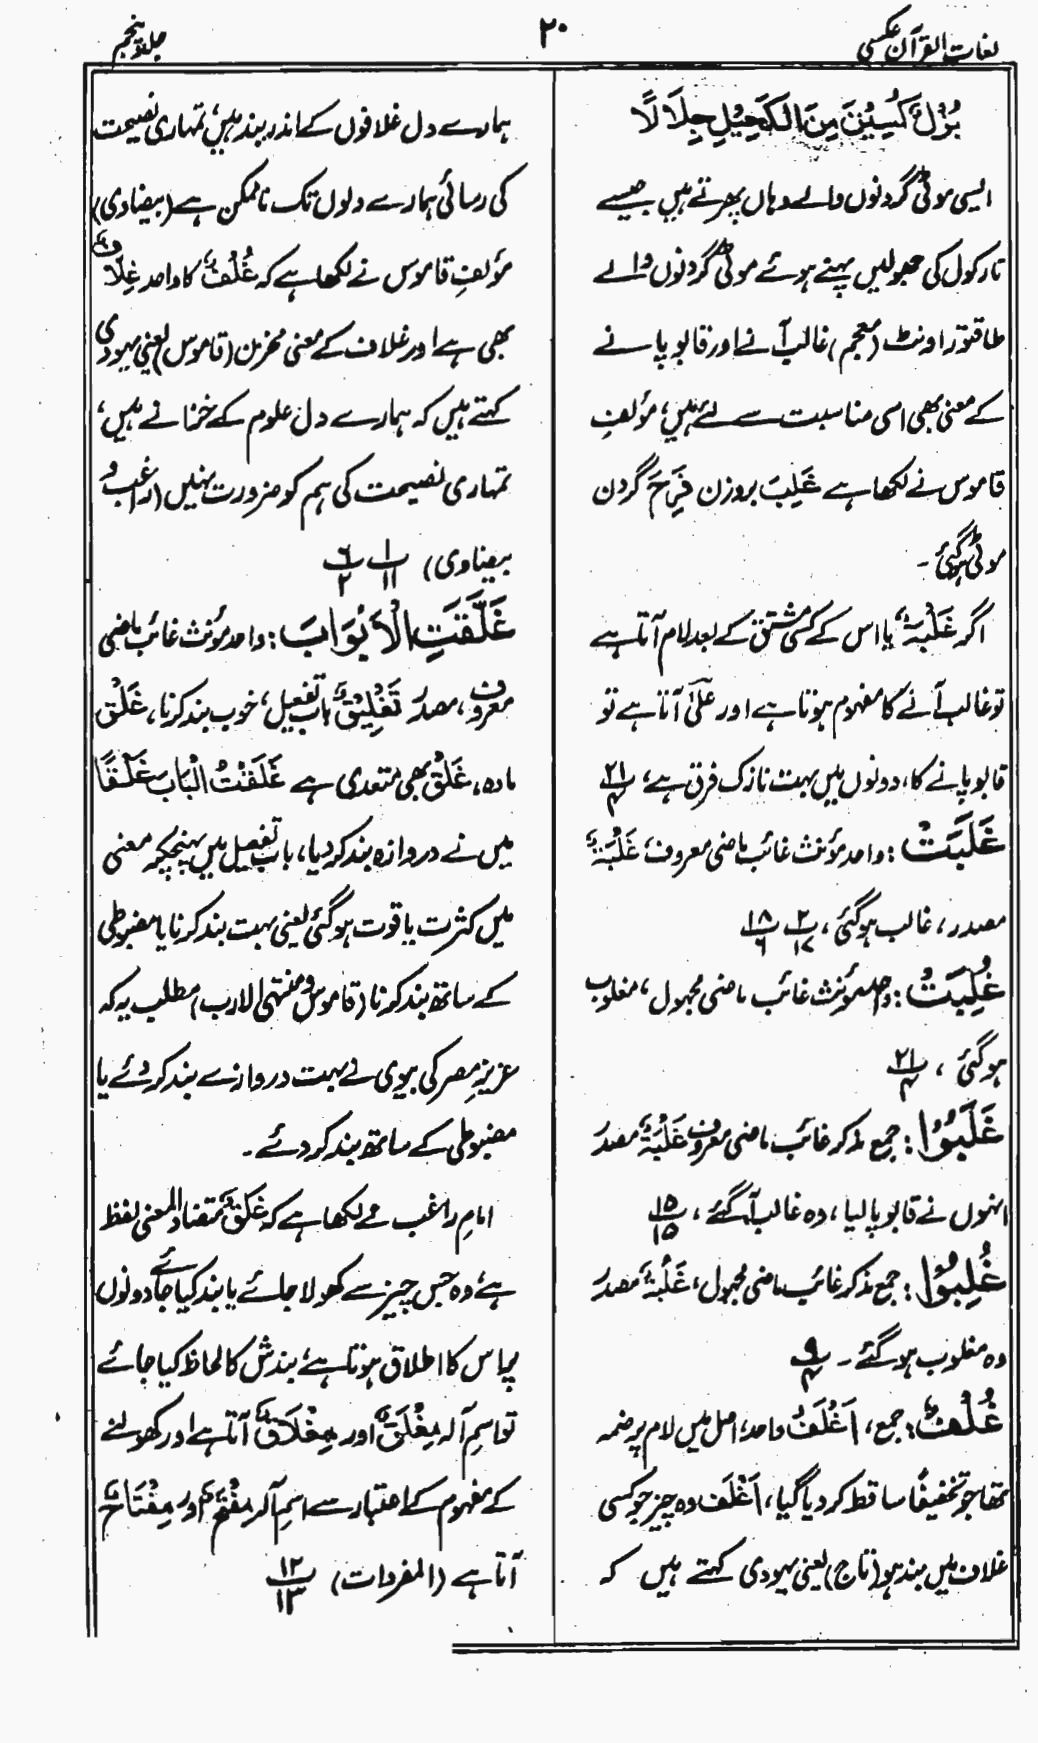 لغات القرآن عکسی
۲۰
جلد پنجم
بُزْلٌ كُسِيْنَ مِنَ الْكَحِيْلِ جِلَالًا
ایسی موٹی گردنوں والے وہاں پھرتے ہیں جیسے
تارکول کی جھولیں پہنے ہوئے موٹی گردنوں والے
طاقتور اونٹ (معجم) غالب آنے اور قابو پانے
کے معنی بھی اسی مناسبت سے لئے ہیں، مؤلفِ
قاموس نے لکھا ہے غَلِبَ بروزن فَرِحَ گردن
موٹی ہوگئی۔
اگر غَلَبَۃٌ یا اس کے کسی مشتق کے بعد لام آتا ہے
تو غالب آنے کا مفہوم ہوتا ہے اور علیٰ آتا ہے تو
قابو پانے کا، دونوں میں بہت نازک فرق ہے، ۲۱/۴
غَلَبَتْ: واحد مؤنث غائب ماضی معروف، غَلَبَۃٌ
مصدر، غالب ہوگئی، ۲/۱۷ ۱۸/۶
غُلِبَتْ: واحد مؤنث غائب ماضی مجہول، مغلوب
ہوگئی، ۲۱/۴
غَلَبُوْا: جمع مذکر غائب ماضی معروف غَلَبَۃٌ مصدر
انہوں نے قابو پالیا، وہ غالب آگئے، ۱۵/۱۵
غُلِبُوْا: جمع مذکر غائب ماضی مجہول، غَلَبَۃٌ مصدر
وہ مغلوب ہوگئے۔ ۹/۴
غُلْفٌ: جمع، اَغْلَفُ واحد، اصل میں لام پر ضمہ
تھا جو تخفیفًا ساقط کر دیا گیا، اَغْلَف وہ چیز جو کسی
غلاف میں بند ہو (تاج) یعنی یہودی کہتے ہیں کہ
ہمارے دل غلافوں کے اندر بند ہیں، تمہاری نصیحت
کی رسائی ہمارے دلوں تک ناممکن ہے (بیضاوی)
مؤلفِ قاموس نے لکھا ہے کہ غُلْفٌ کا واحد غِلَافٌ
بھی ہے اور غلاف کے معنی مخزن (قاموس) یعنی یہودی
کہتے ہیں کہ ہمارے دل علوم کے خزانے ہیں،
تمہاری نصیحت کی ہم کو ضرورت نہیں (راغب و
بیضاوی) ۱/۱۱ ۶/۲
غَلَّقَتِ الْاَبْوَابَ: واحد مؤنث غائب ماضی
معروف، مصدر تَغْلِیْقٌ باب تفعیل، خوب بند کرنا، غَلْق
مادہ، غَلْق بھی متعدی ہے غَلَقْتُ الْبَابَ غَلْقًا
میں نے دروازہ بند کر دیا، باب تفعیل میں پہنچکر معنی
میں کثرت یا قوت ہوگئی یعنی بہت بند کرنا یا مضبوطی
کے ساتھ بند کرنا (قاموس و منتہی الارب) مطلب یہ کہ
عزیزِ مصر کی بیوی نے بہت دروازے بند کر دئے یا
مضبوطی کے ساتھ بند کر دئے۔
امام راغب نے لکھا ہے کہ غلق متضاد المعنی لفظ
ہے، وہ جس چیز سے کھولا جائے یا بند کیا جائے دونوں
پر اس کا اطلاق ہوتا ہے، بندش کا لحاظ کیا جائے
تو اسمِ آلہ مِغْلَقٌ اور مِغْلَاقٌ آتا ہے اور کھولنے
کے مفہوم کے اعتبار سے اسمِ آلہ مِفْتَحٌ اور مِفْتَاحٌ
آتا ہے (المفردات) ۱۲/۱۳